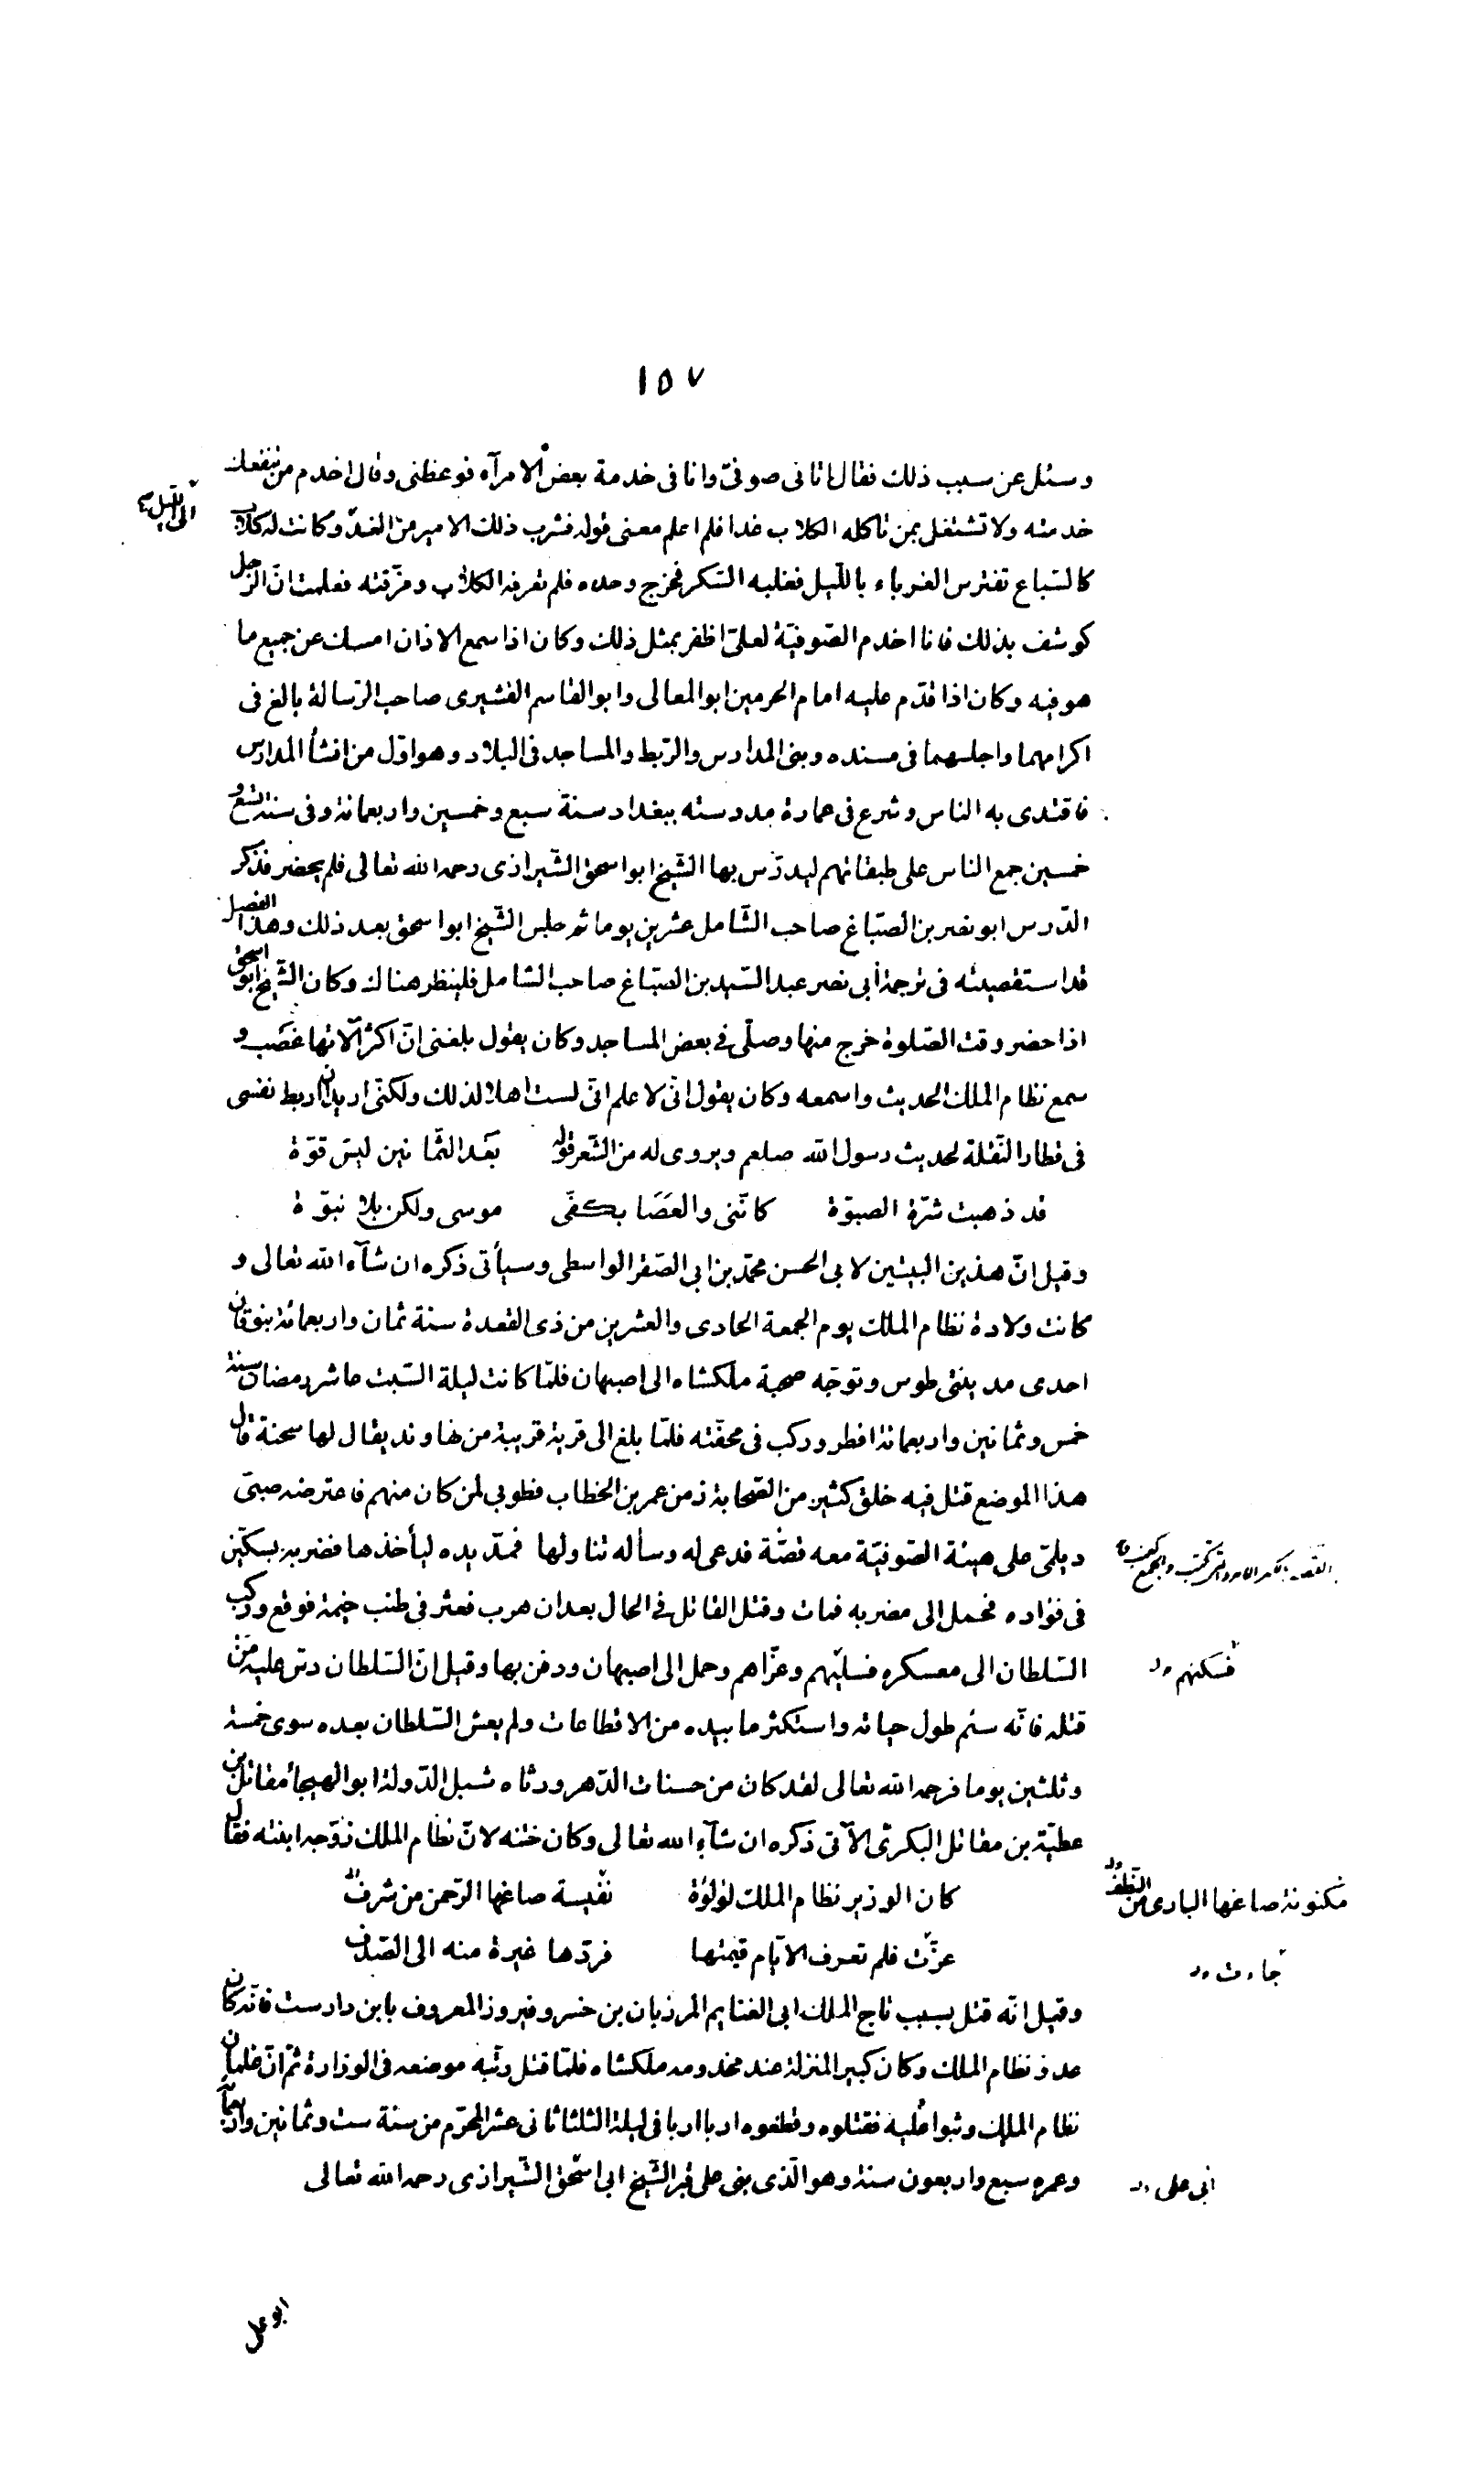 ١٥٧
وسئل عن سبب ذلك فقال اتانى صوفىّ وانا فى خدمة بعض الامرآء فوعظنى وقال اخدم من تنفعك
خدمته ولا تشتغل بمن تاكله الكلاب غدا فلم اعلم معنى قوله فشرب ذلك الامير من الغدّ وكانت له كلاب
الى الليل
كالسّباع تفترس الغرباء باللّيل فغلبه السّكر فخرج وحده فلم تعرفه الكلاب ومزّقته فعلمت انّ الرّجل
كوشف بذلك فانا اخدم الصّوفيّة لعلىّ اظفر بمثل ذلك وكان اذا سمع الاذان امسك عن جميع ما
هو فيه وكان اذا قدّم عليه امام الحرمين ابو المعالى وابو القاسم القشيرى صاحب الرّسالة بالغ فى
اكرامهما واجلسهما فى مسنده وبنى المدارس والرّبط والمساجد فى البلاد وهو اوّل من انشأ المدارس
فاقتدى به الناس وشرع فى عمارة مدرسته ببغداد سنة سبع وخمسين واربعمائة وفى سنة تسع و
خمسين جمع الناس على طبقاتهم ليدرّس بها الشّيخ ابو اسحق الشّيرازى رحمه الله تعالى فلم يحضر فذكر
الدّرس ابو نصر بن الصبّاغ صاحب الشّامل عشرين يوما ثم جلس الشّيخ ابو اسحق بعد ذلك وهذا الفصل
قد استقصيته فى ترجمة أبى نصر عبد السّيد بن الصبّاغ صاحب الشامل فلينظر هناك وكان الشّيخ ابو اسحق
اذا حضر وقت الصّلوة خرج منها وصلّى فى بعض المساجد وكان يقول بلغنى انّ اكثر آلاتها غصب و
سمع نظام الملك الحديث واسمعه وكان يقول انّى لاعلم انّى لست اهلا لذلك ولكنّى اريد ان اربط نفسى
فى قطار النّقلة لحديث رسول الله صلعم ويروى له من الشّعر قوله بعد الثّمانين ليس قوّة
قد ذهبت شرّة الصبوّة كانّنى والعصا بكفّى موسى ولكن بلا نبوّة
وقيل انّ هذين البيتين لابى الحسن محمّد بن ابى الصّقر الواسطى وسيأتى ذكره ان شآء الله تعالى و
كانت ولادة نظام الملك يوم الجمعة الحادى والعشرين من ذى القعدة سنة ثمان واربعمائة بنوقان
احدى مدينتى طوس وتوجّه صحبة ملكشاه الى اصبهان فلمّا كانت ليلة السّبت عاشر رمضان سنة
خمس وثمانين واربعمائة افطر وركب فى محفّته فلمّا بلغ الى قرية قريبة من نهاوند يقال لها سحنة قال
هذا الموضع قتل فيه خلق كثير من الصّحابة زمن عمر بن الخطاب فطوبى لمن كان منهم فاعترضه صبىّ
ديلمىّ على هيئة الصّوفيّة معه قصّة فدعى له وسأله تناولها فمدّ يده ليأخذها فضربه بسكّين
فى فؤاده فحمل الى مضربه فمات وقتل القاتل فى الحال بعد ان هرب فعثر فى طنب خيمة فوقع وركب
السّلطان الى معسكره فسلّيهم وعزّاهم وحمل الى اصبهان ودفن بها وقيل انّ السّلطان دسّ عليه من
فسكنهم
قتله فانّه سئم طول حياته واستكثر ما بيده من الاقطاعات ولم يعش السّلطان بعده سوى خمسة
وثلثين يوما فرحمه الله تعالى لقد كان من حسنات الدّهر ورثاه شبل الدّولة ابو الهيجاء مقاتل بن
عطيّة بن مقاتل البكرىّ الآتى ذكره ان شآء الله تعالى وكان ختنه لانّ نظام الملك زوّجه ابنته فقال
كان الوزير نظام الملك لؤلؤة نفيسة صاغها الرّحمن من شرف
مكنونة صاغها البارى من النطف
عزّت فلم تعرف الايّام قيمتها فردّها غيرة منه الى الصّدف
جاءت
وقيل انّه قتل بسبب تاج الملك ابى الغنايم المرزبان بن خسرو فيروز المعروف بابن دارست فانّه كان
عدوّ نظام الملك وكان كبير المنزلة عند مخدومه ملكشاه فلمّا قتل رتّبه موضعه فى الوزارة ثمّ انّ غلمان
نظام الملك وثبوا عليه فقتلوه وقطعوه اربا اربا فى ليلة الثلثا ثانى عشر المحرّم من سنة ست وثمانين واربعمآئة
وعمره سبع واربعون سنة وهو الّذى بنى على قبر الشّيخ ابى اسحق الشّيرازى رحمه الله تعالى
أبى على
ابو على